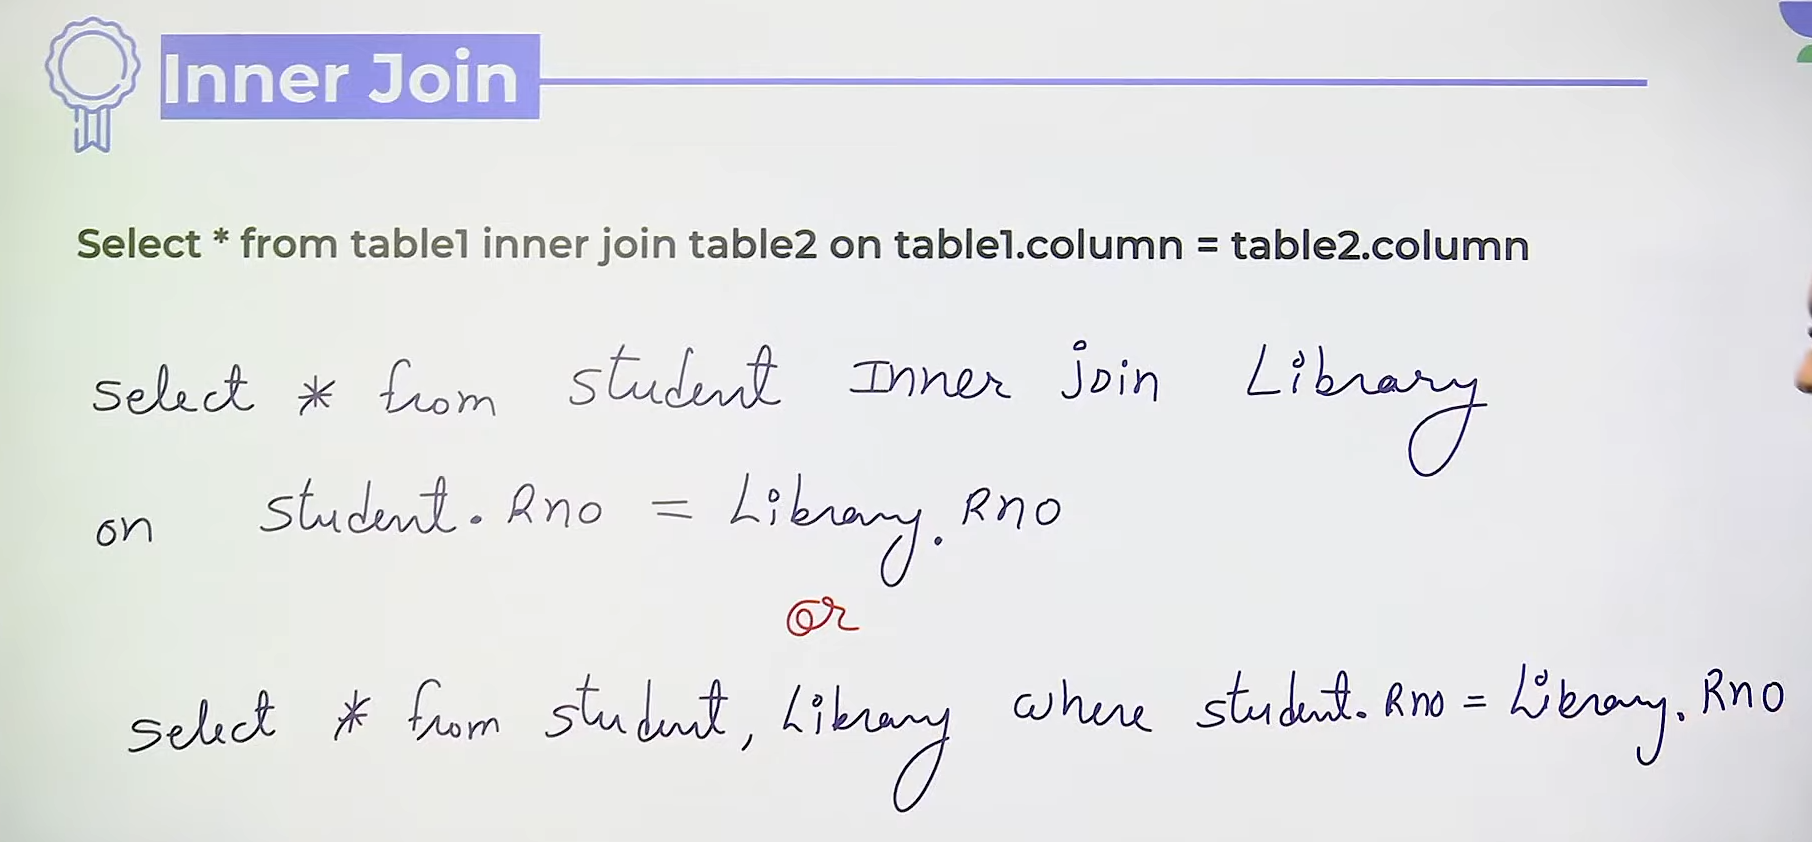 Inner Join
Select * from table1 inner join table2 on table1.column = table2.column
select * from student Inner join Library
on student. Rno = Library. Rno
or
select * from student, Library where student. Rno = Library. Rno